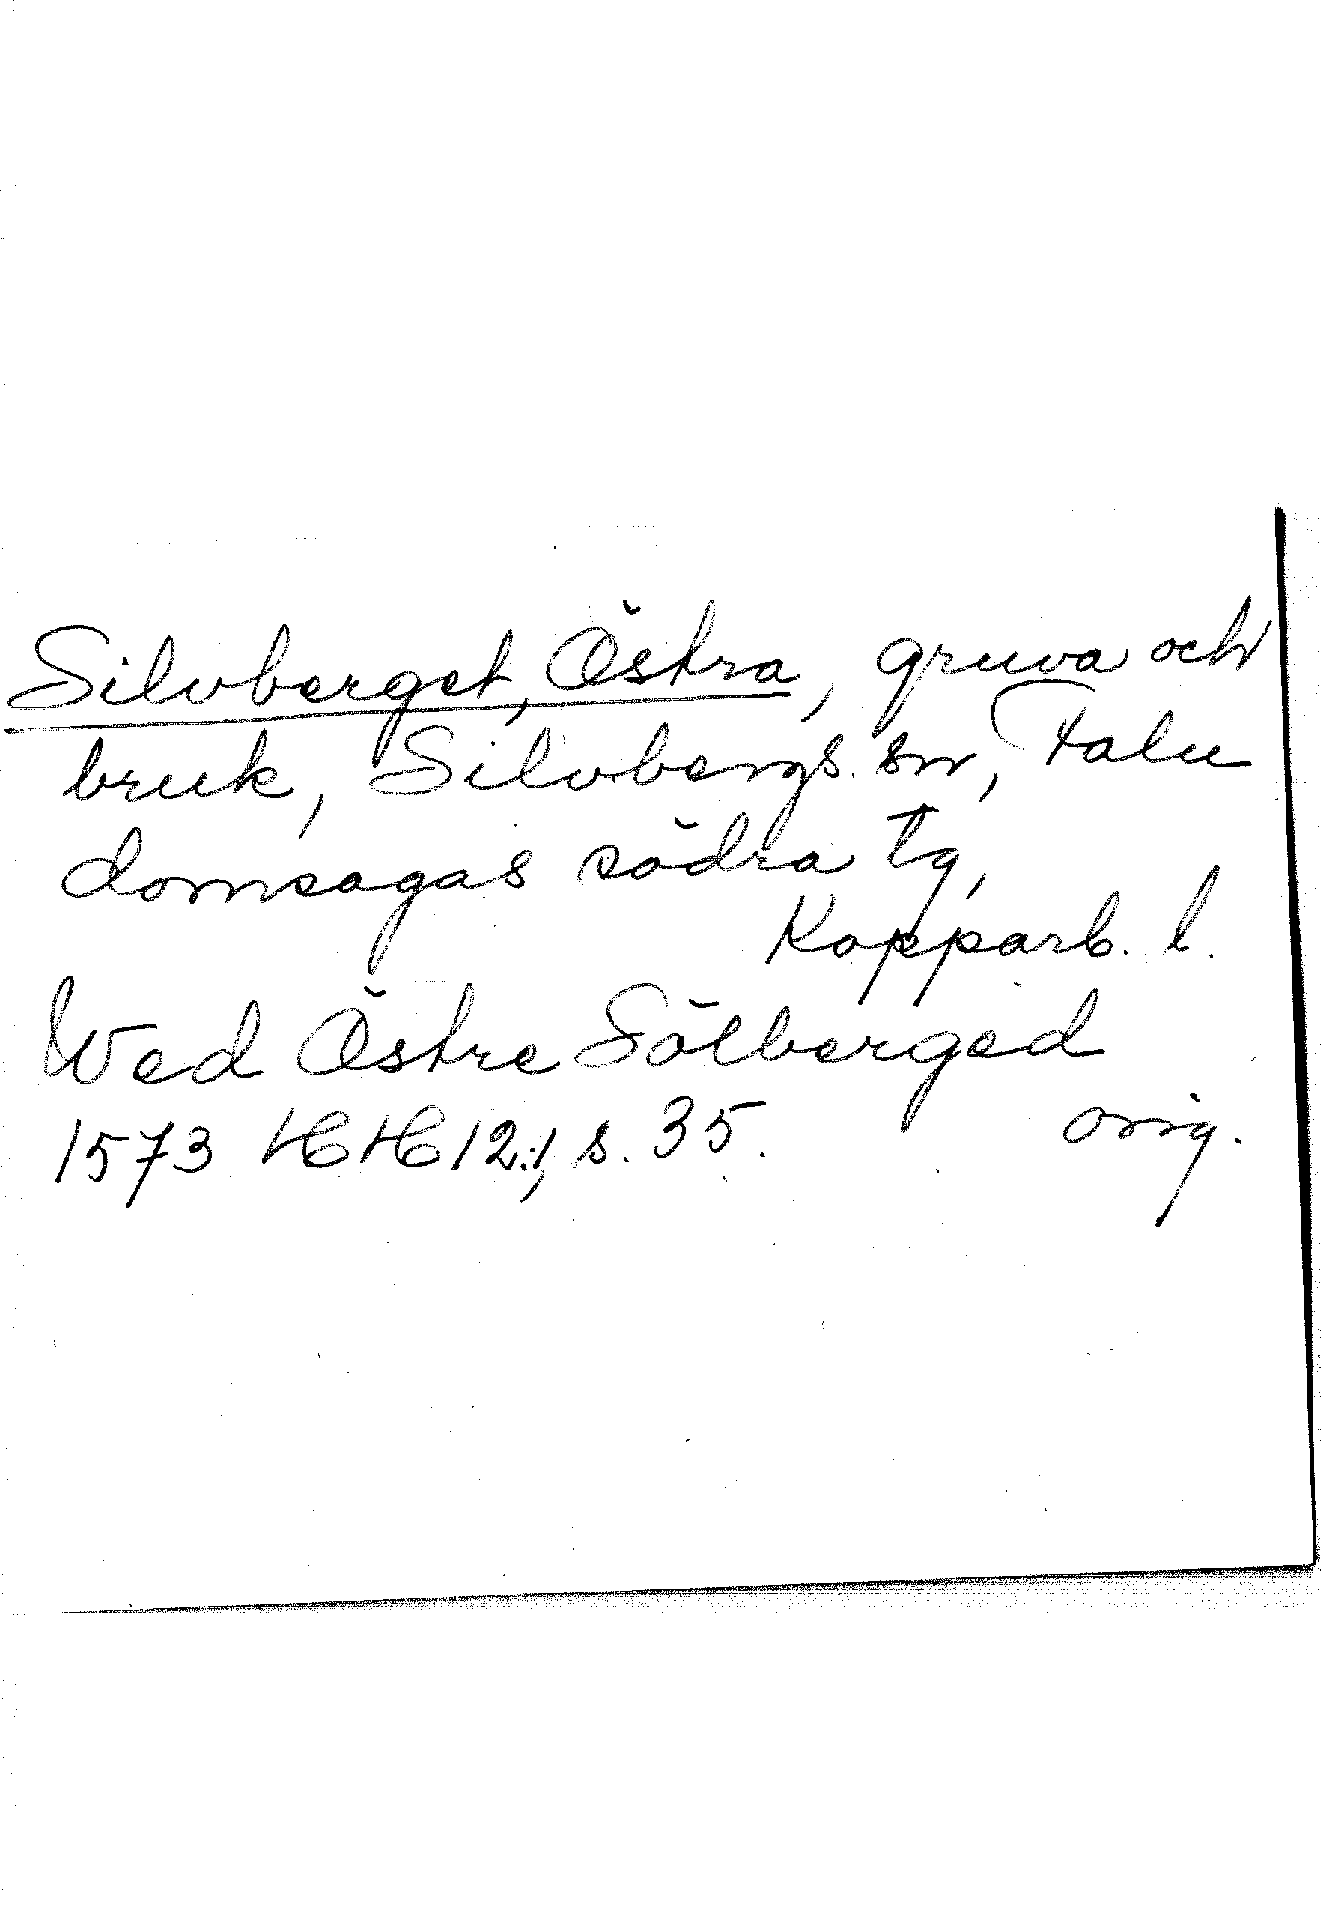 Silvberget, Östra, gruva och
bruk, Silvbergs sn, Falu
domsagas södra tg,
Kopparb. l.
Wed Östre Sölberged
1573 HH 12:1, s. 35. orig.